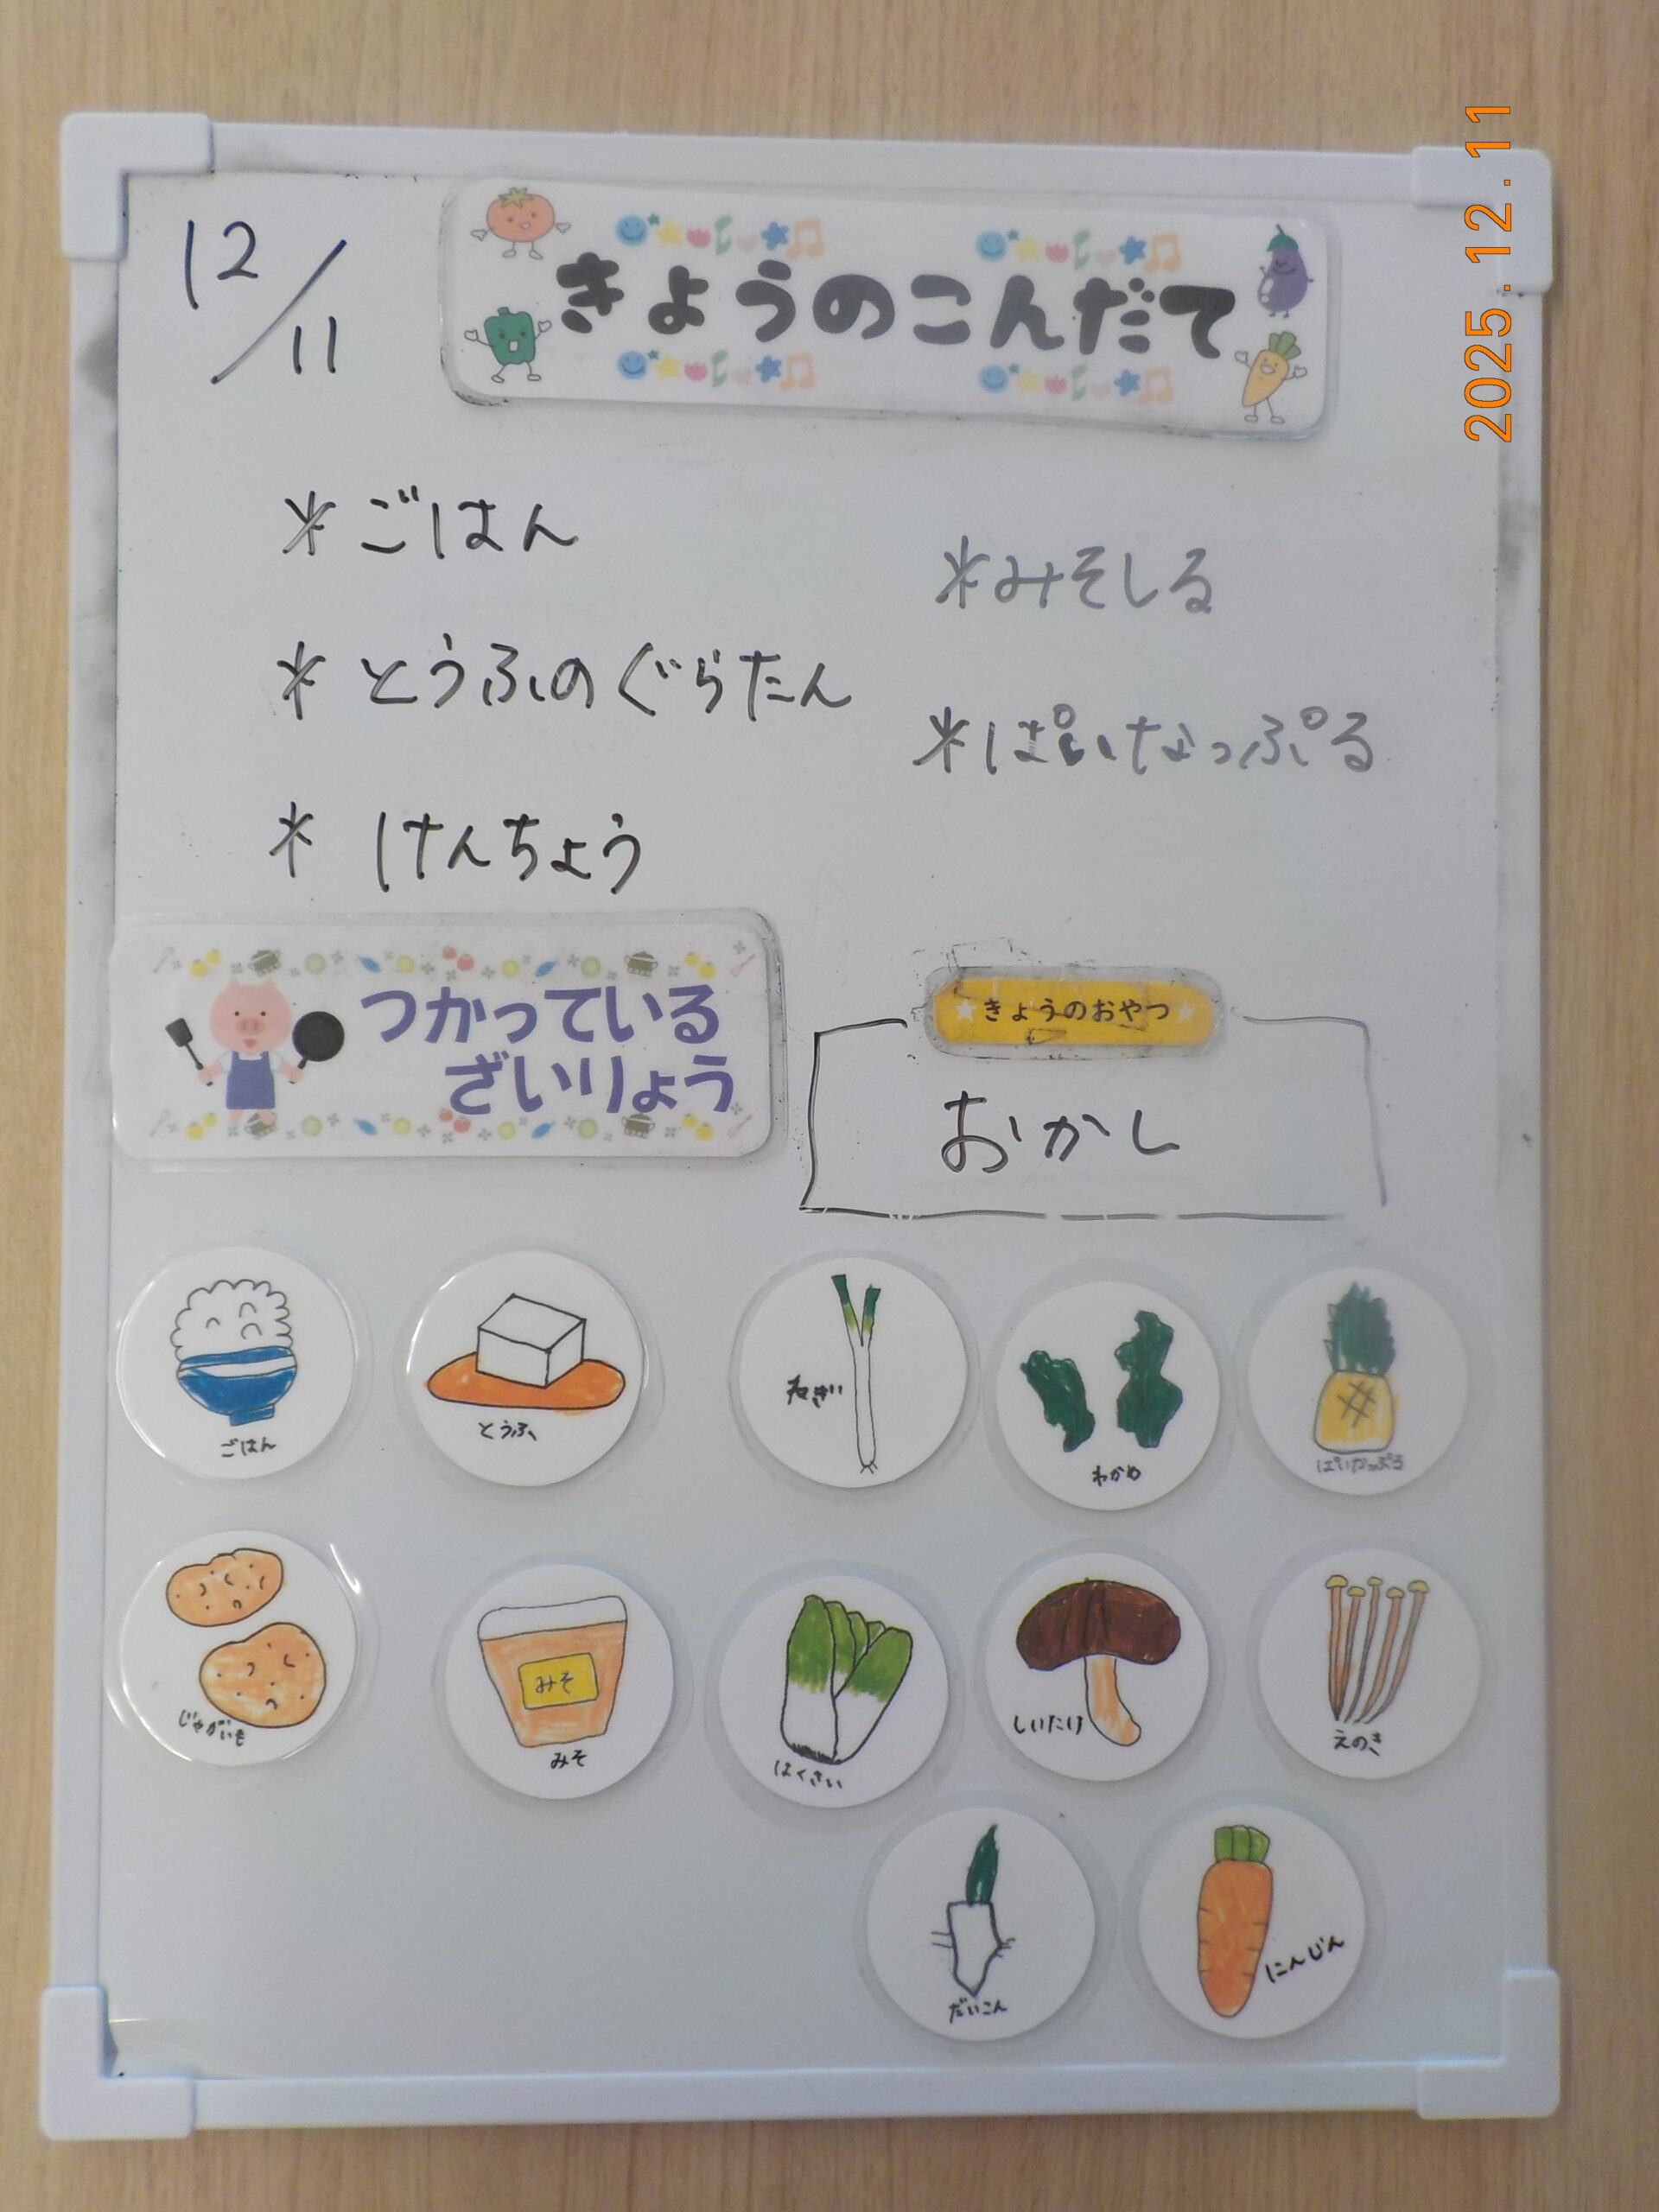 2025.12.11
12/11
きょうのこんだて
＊ごはん
＊とうふのぐらたん
＊けんちょう
＊みそしる
＊ぱいなっぷる
つかっている
ざいりょう
きょうのおやつ
おかし
ごはん
とうふ
ねぎ
わかめ
ぱいなっぷる
じゃがいも
みそ
みそ
はくさい
しいたけ
えのき
だいこん
にんじん